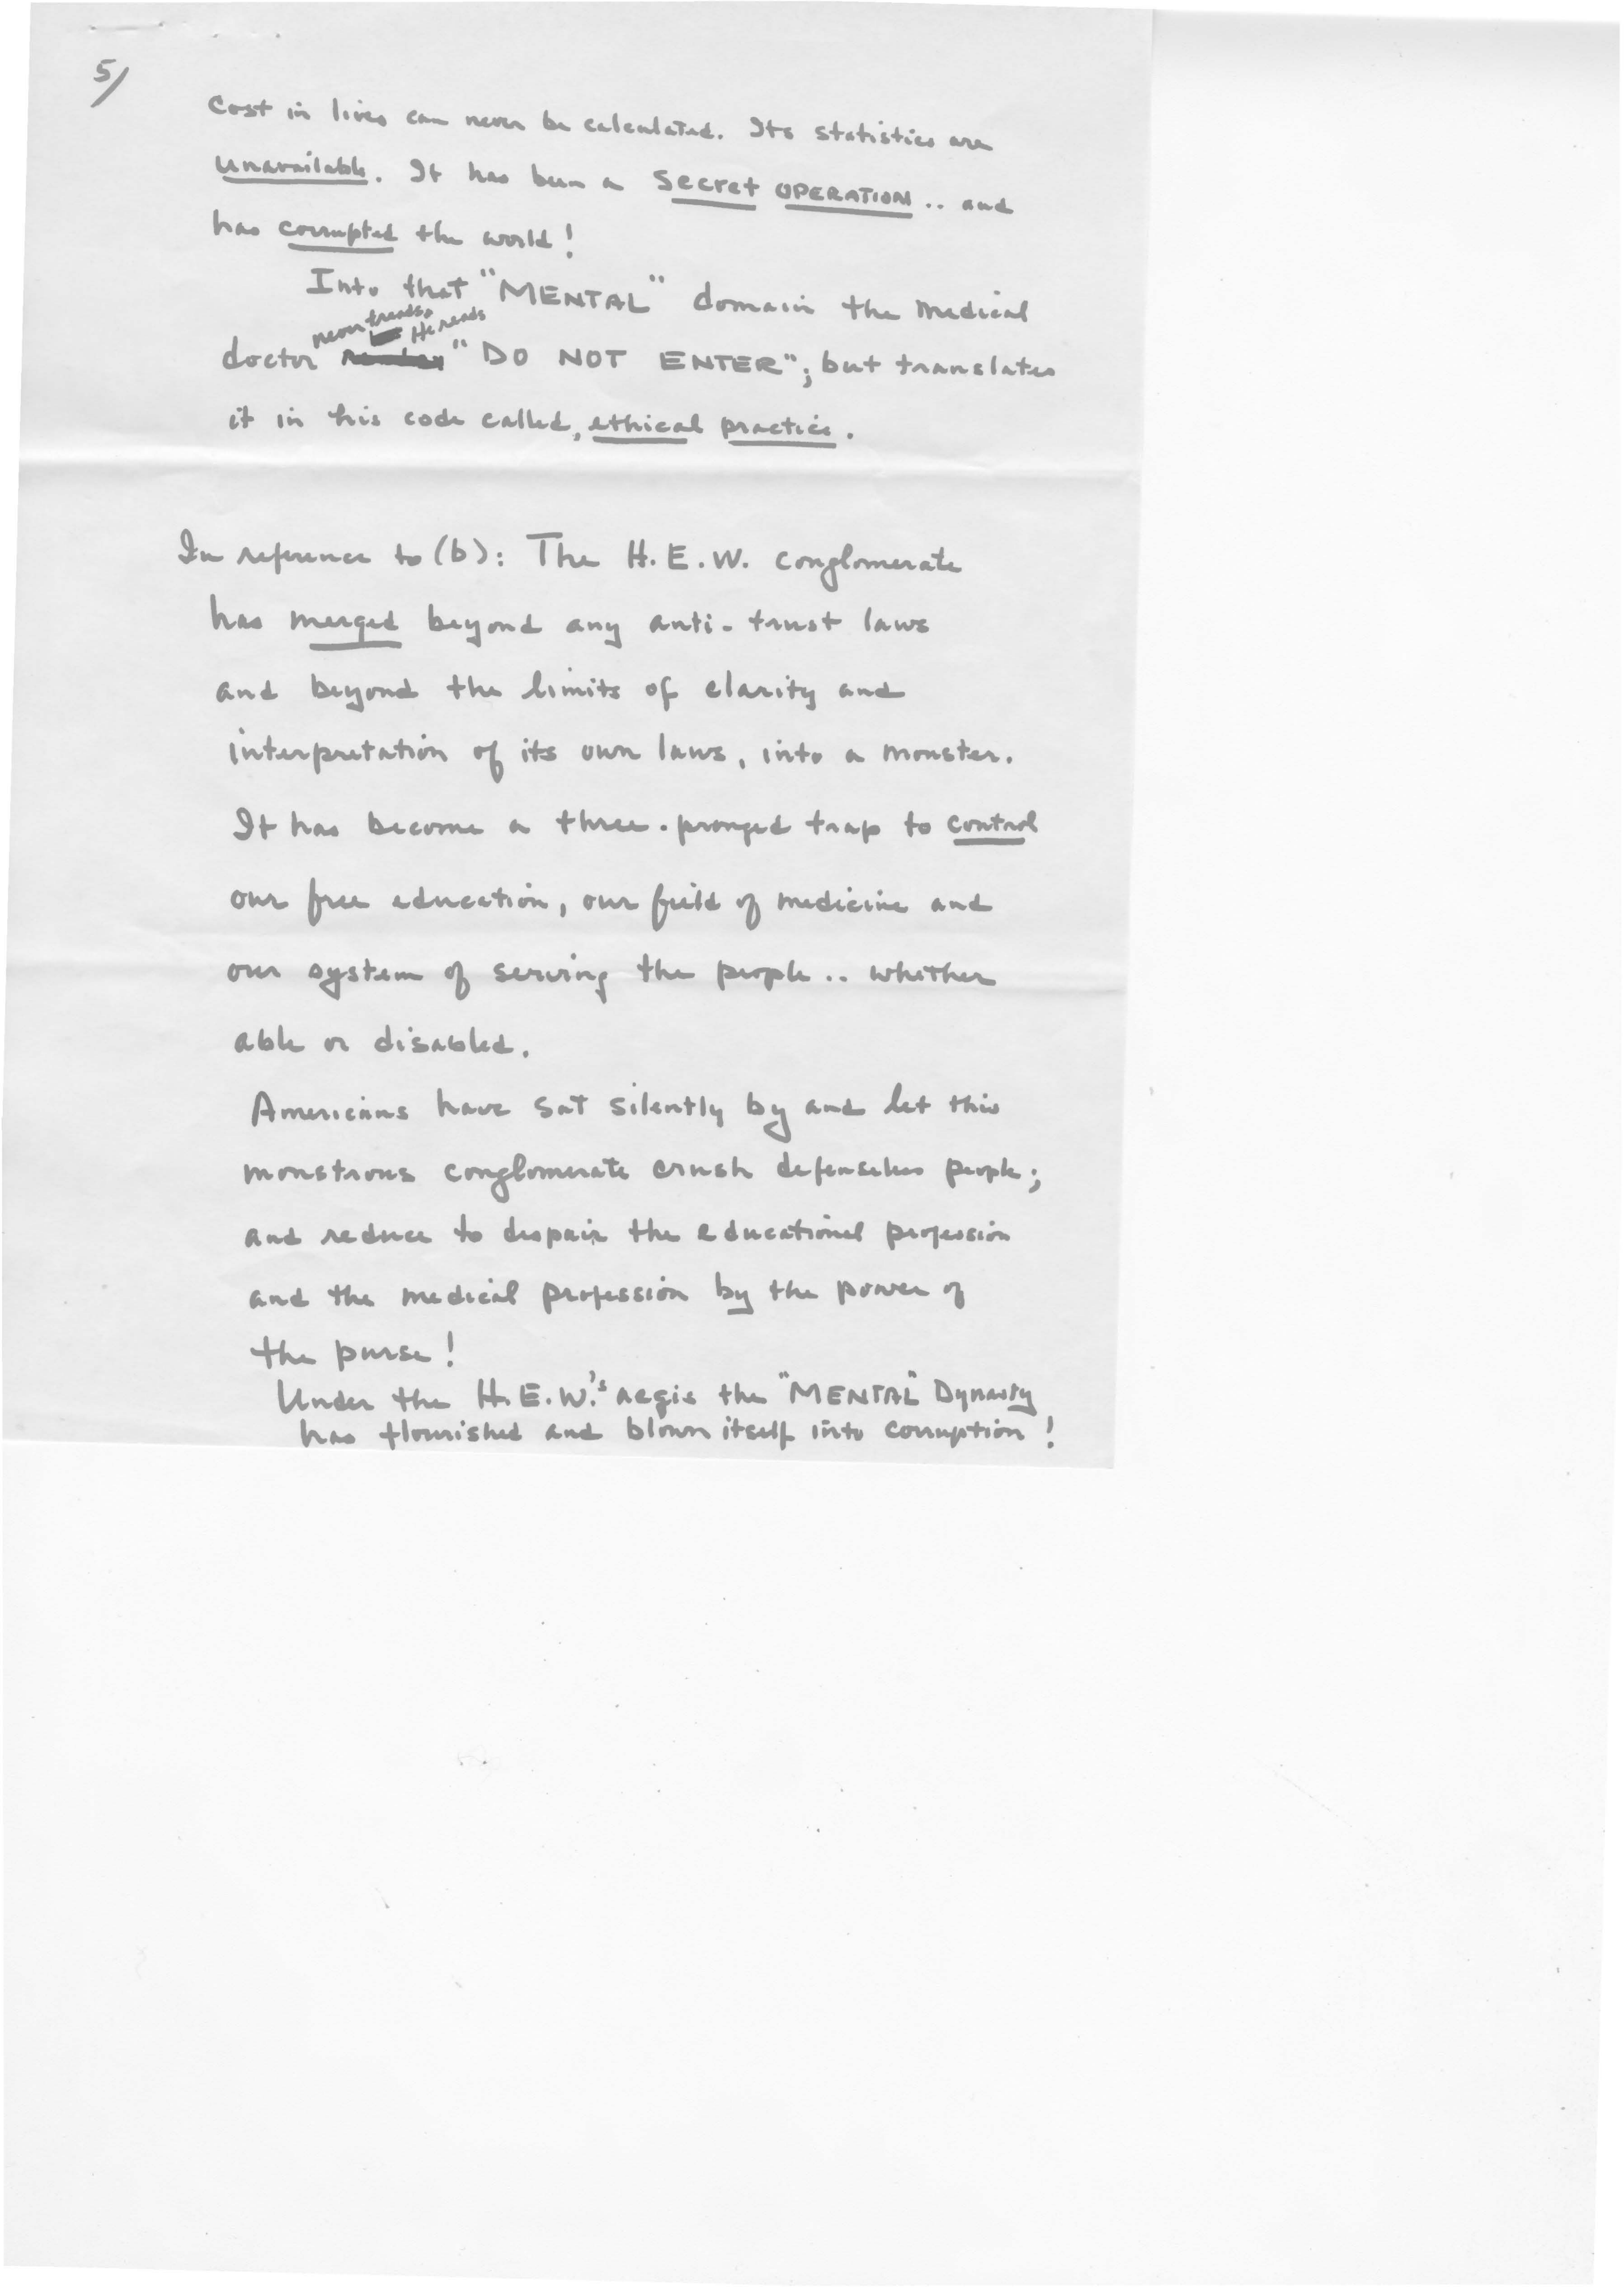 5/
Cost in lives can never be calculated. Its statistics are
unavailable. It has been a secret OPERATION .. and
has corrupted the world!
Into that "MENTAL" domain the medical
never treads. He reads
doctor "DO NOT ENTER"; but translates
it in his code called, ethical practice.
In reference to (b): The H.E.W. conglomerate
has merged beyond any anti-trust laws
and beyond the limits of clarity and
interpretation of its own laws, into a monster.
It has become a three-pronged trap to control
our free education, our field of medicine and
our system of serving the people .. whether
able or disabled.
Americans have sat silently by and let this
monstrous conglomerate crush defenseless people;
and reduce to despair the educational profession
and the medical profession by the power of
the purse!
Under the H.E.W.'s aegis the "MENTAL" Dynasty
has flourished and blown itself into corruption!